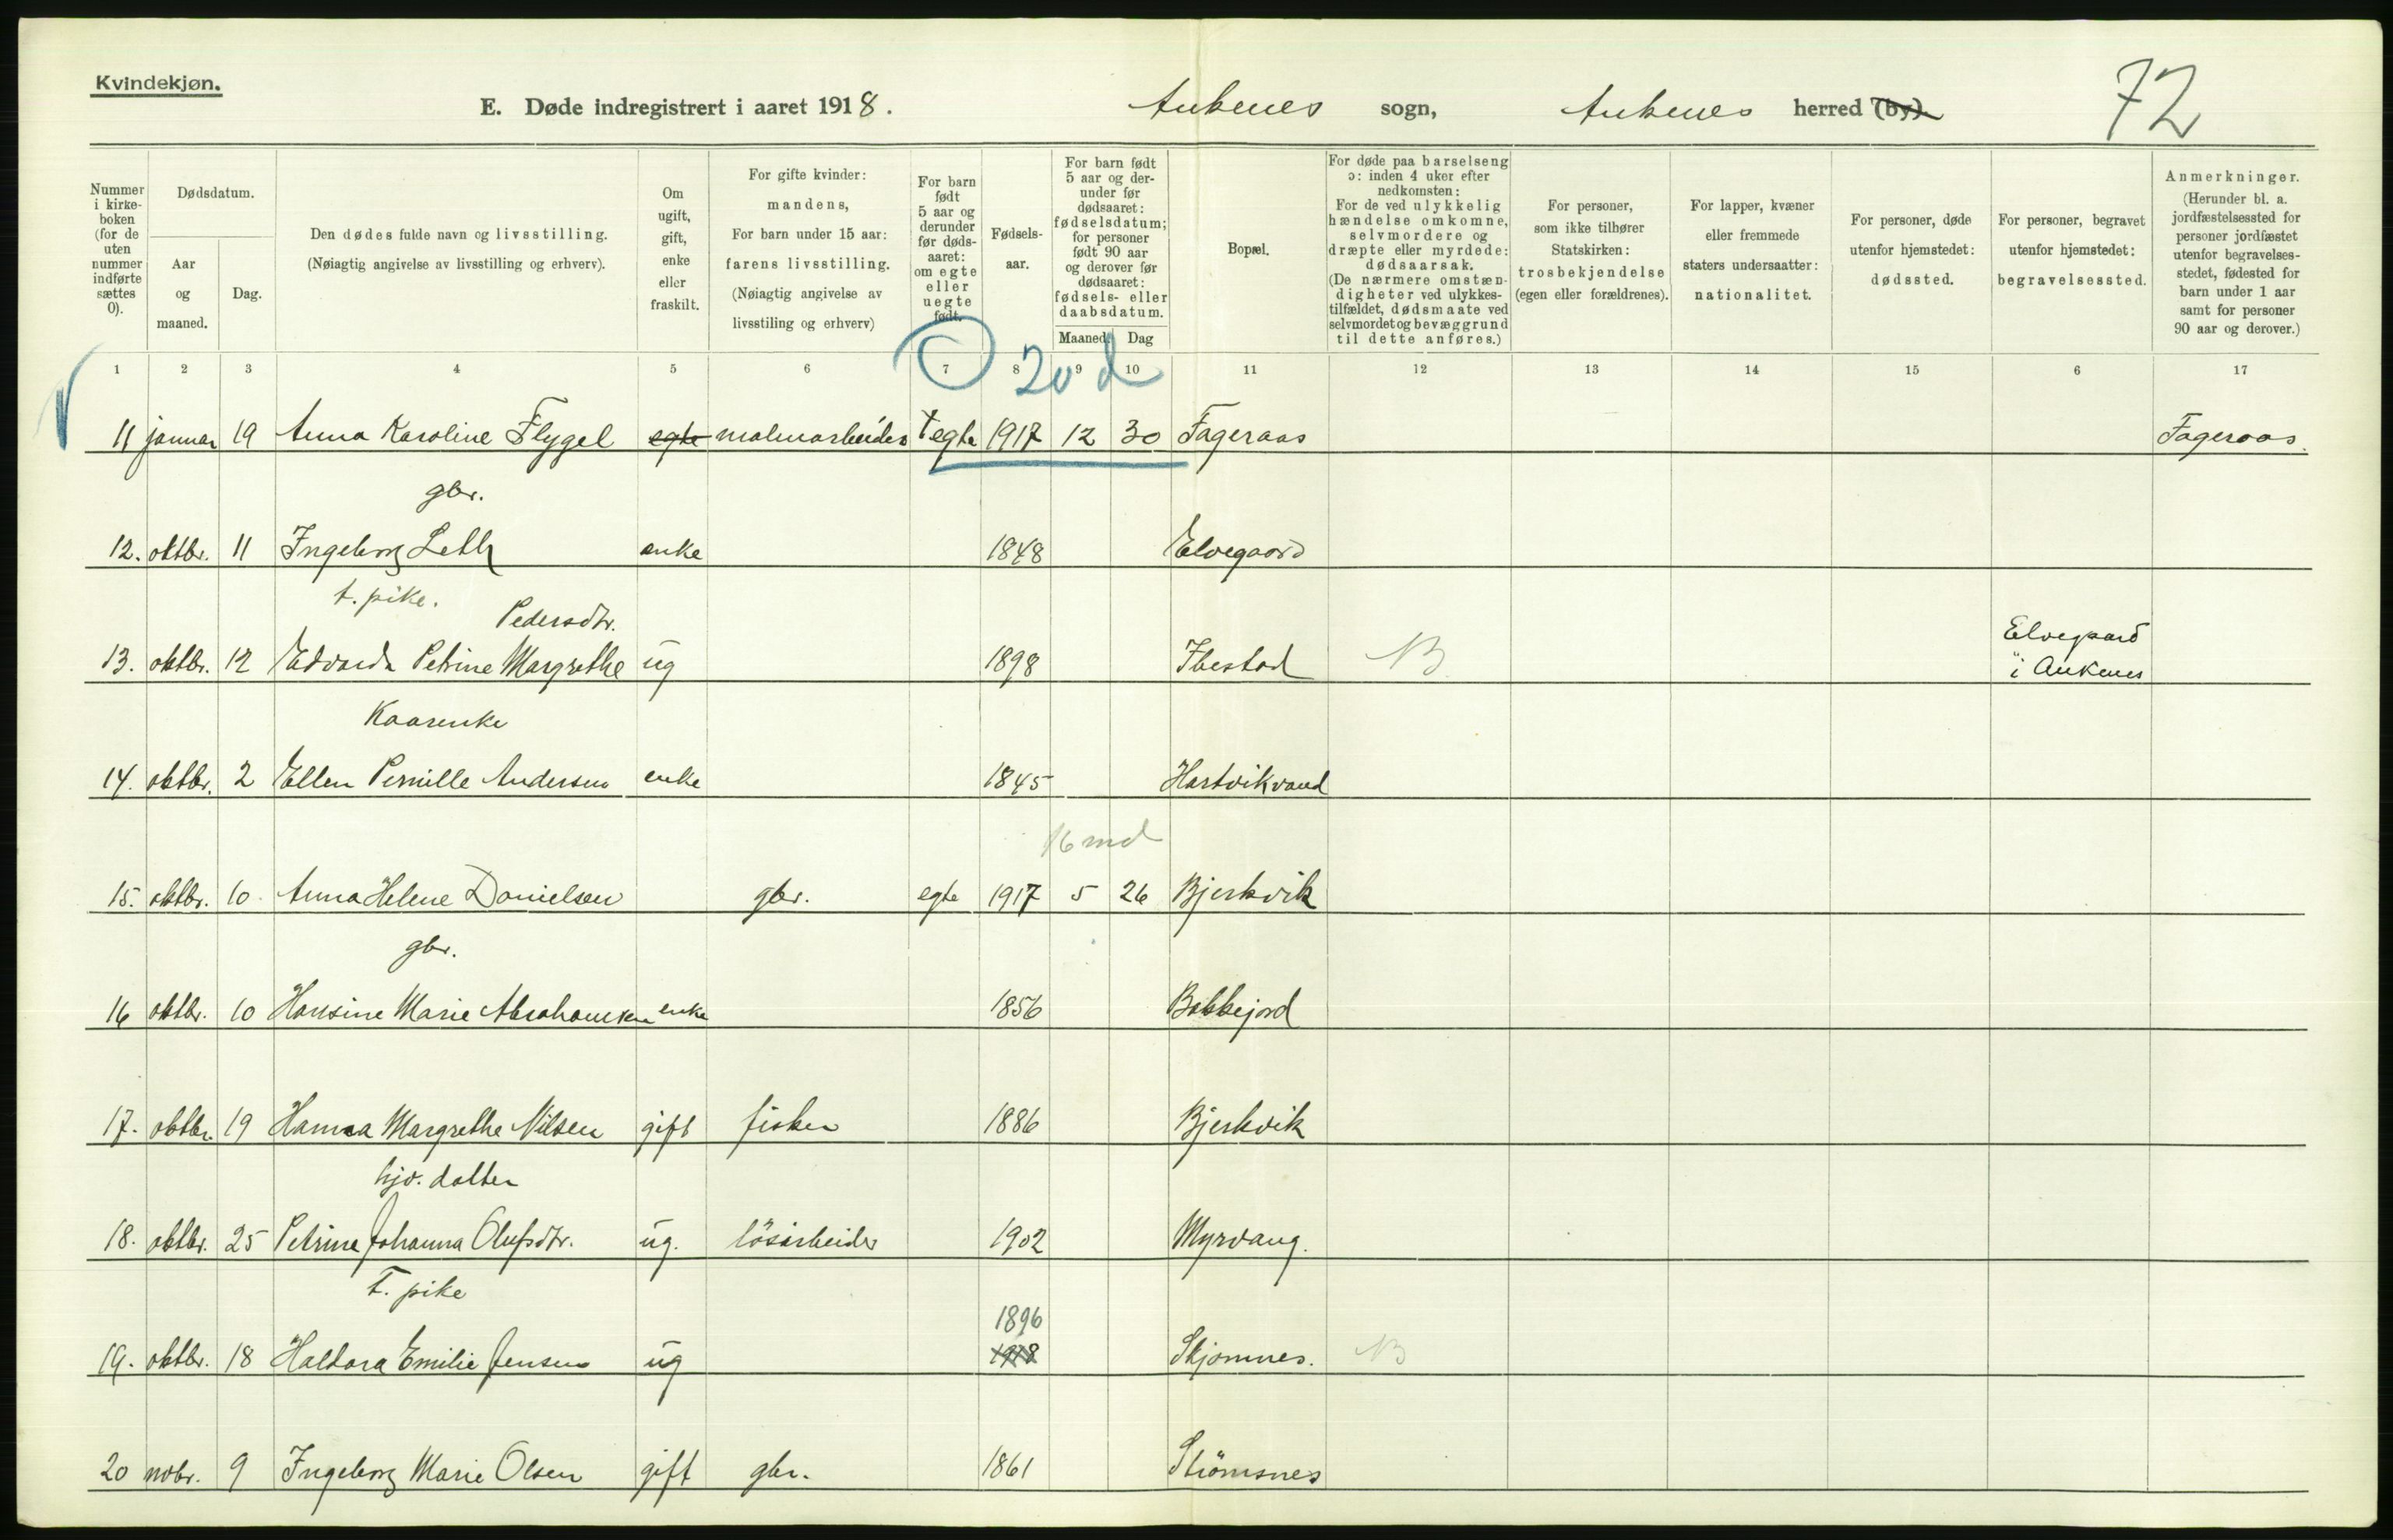 Kvindekjøn.
E. Døde indregistrert i aaret 1918.
Ankenes sogn, Ankenes herred (by)
72
Nummer i kirkeboken (for de uten nummer indførte sættes 0).
Dødsdatum.
Aar og maaned.
Dag.
Den dødes fulde navn og livsstilling.
(Nøiagtig angivelse av livsstilling og erhverv).
Om ugift, gift, enke eller fraskilt.
For gifte kvinder: mandens,
For barn under 15 aar: farens livsstilling.
(Nøiagtig angivelse av livsstiling og erhverv)
For barn født 5 aar og derunder før dødsaaret: om egte eller uegte født.
Fødselsaar.
For barn født 5 aar og derunder før dødsaaret: fødselsdatum; for personer født 90 aar og derover før dødsaaret: fødsels- eller daabsdatum.
Maaned. Dag
Bopæl.
For døde paa barselseng ɔ: inden 4 uker efter nedkomsten:
For de ved ulykkelig hændelse omkomne, selvmordere og dræpte eller myrdede: dødsaarsak.
(De nærmere omstændigheter ved ulykkestilfældet, dødsmaate ved selvmordet og bevæggrund til dette anføres.)
For personer, som ikke tilhører Statskirken: trosbekjendelse (egen eller forældrenes).
For lapper, kvæner eller fremmede staters undersaatter: nationalitet.
For personer, døde utenfor hjemstedet: dødssted.
For personer, begravet utenfor hjemstedet: begravelsessted.
Anmerkninger.
(Herunder bl. a. jordfæstelsessted for personer jordfæstet utenfor begravelsesstedet, fødested for barn under 1 aar samt for personer 90 aar og derover.)
1 2 3 4 5 6 7 8 9 10 11 12 13 14 15 6 17
20 d
11 januar 19 Anna Karoline Flygel egte malmarbeider egte 1917 12 30 Fageraas Fageraas.
gbr.
12. oktbr. 11 Ingeborg Leth enke 1848 Elvegaard
t. pike.
Pedersdtr.
13. oktbr. 12 Edvarda Petrine Margrethe ug 1898 Ibestad B Elvegaard
i Ankenes
Kaarenke
14. oktbr. 2 Ellen Pernille Andersen enke 1845 Hartvikvand
16 md
15. oktbr. 10 Anna Helene Danielsen gbr. egte 1917 5 26 Bjerkvik
gbr.
16 oktbr. 10 Hansine Marie Abrahamsen enke 1856 Bokkejord
17. oktbr. 19 Hanna Margrethe Nilsen gift fisker 1886 Bjerkvik
hjv. datter
18. oktbr. 25 Petrine Johanna Olufsdtr. ug. lösarbeider 1902 Myrvang.
T. pike
1896
19. oktbr. 18 Haldora Emilie Jensen ug 1918 Skjomnes. B
20 nobr. 9 Ingeborg Marie Olsen gift gbr. 1861 Strömsnes